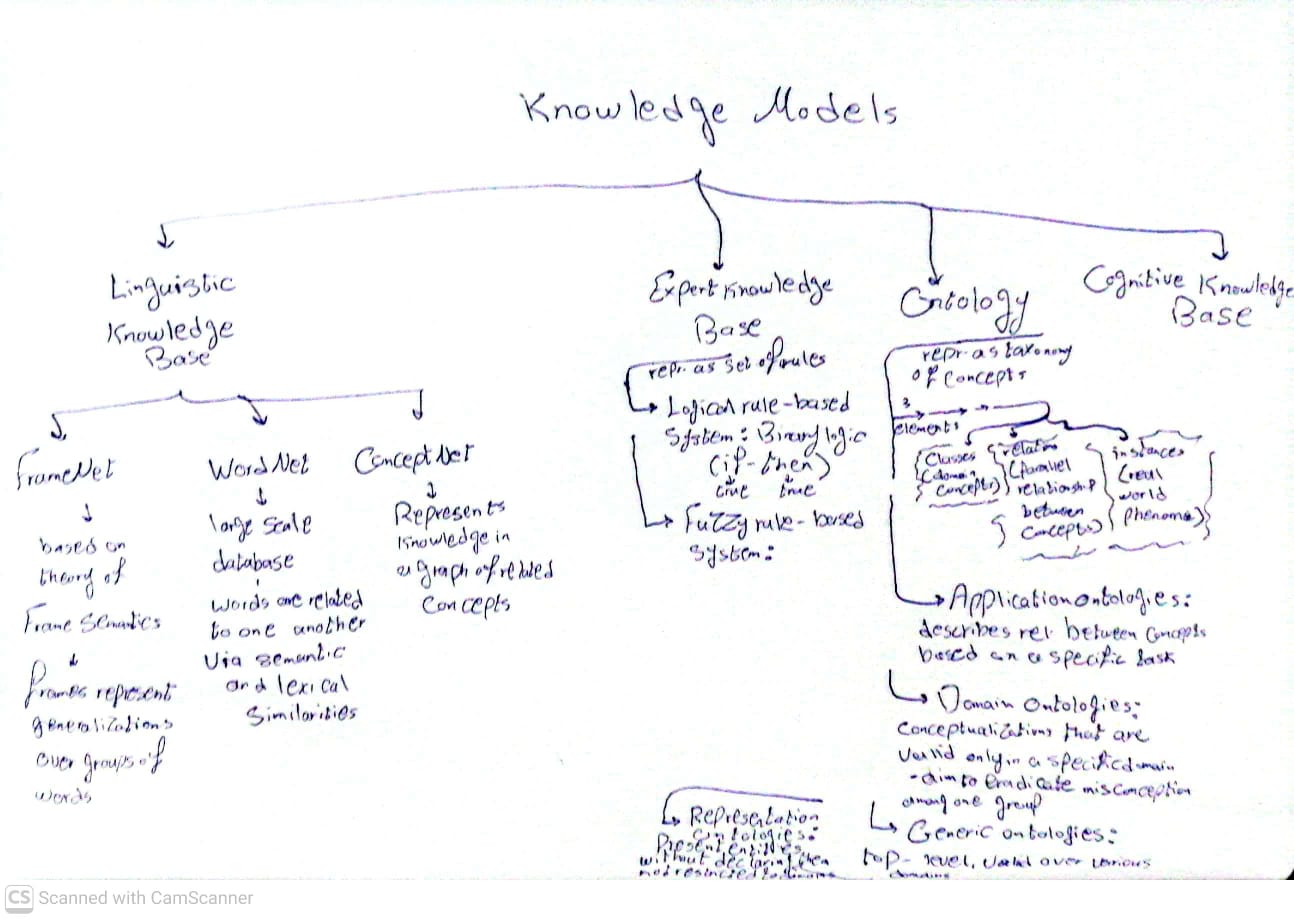 Knowledge Models
Linguistic
Knowledge
Base
FrameNet
based on
theory of
Frame Semantics
frames represent
generalizations
over groups of
words
WordNet
large scale
database
words are related
to one another
via semantic
and lexical
similarities
ConceptNet
Represents
Knowledge in
a graph of related
concepts
Expert Knowledge
Base
repr. as set of rules
Logical rule-based
System: Binary logic
(if-then)
true true
Fuzzy rule-based
System:
Ontology
repr. as taxonomy
of concepts
3
elements
Classes
(domain
concepts)
relation
(parallel
relationship
between
concepts)
instances
(real
world
phenomena)
Application ontologies:
describes rel. between concepts
based on a specific task
Domain ontologies:
conceptualizations that are
valid only in a specific domain
- aim to eradicate misconception
among one group
Generic ontologies:
top-level, valid over various
domains
Representation
Ontologies:
Present entities
without declaring them
not restricted to
Cognitive Knowledge
Base
CS Scanned with CamScanner